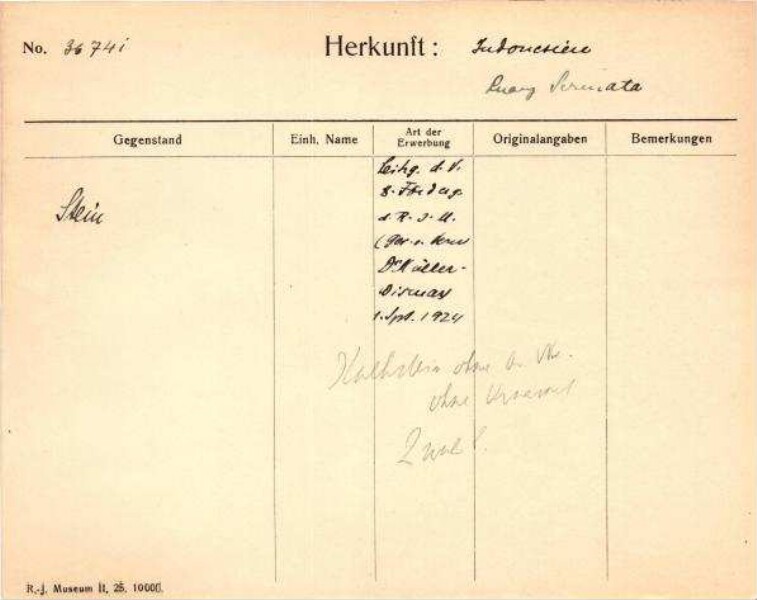 No. 36741
Herkunft: Indonesien
Luang Sermata
Gegenstand Einh. Name Art der Erwerbung Originalangaben Bemerkungen
Stein
Leihg. d. V.
z. Förderg.
d. R. J. M.
Dr Müller-
Wismar
1. Spt. 1924
Kalkstein ohne
ohne
R.-J. Museum II, 25. 10000.